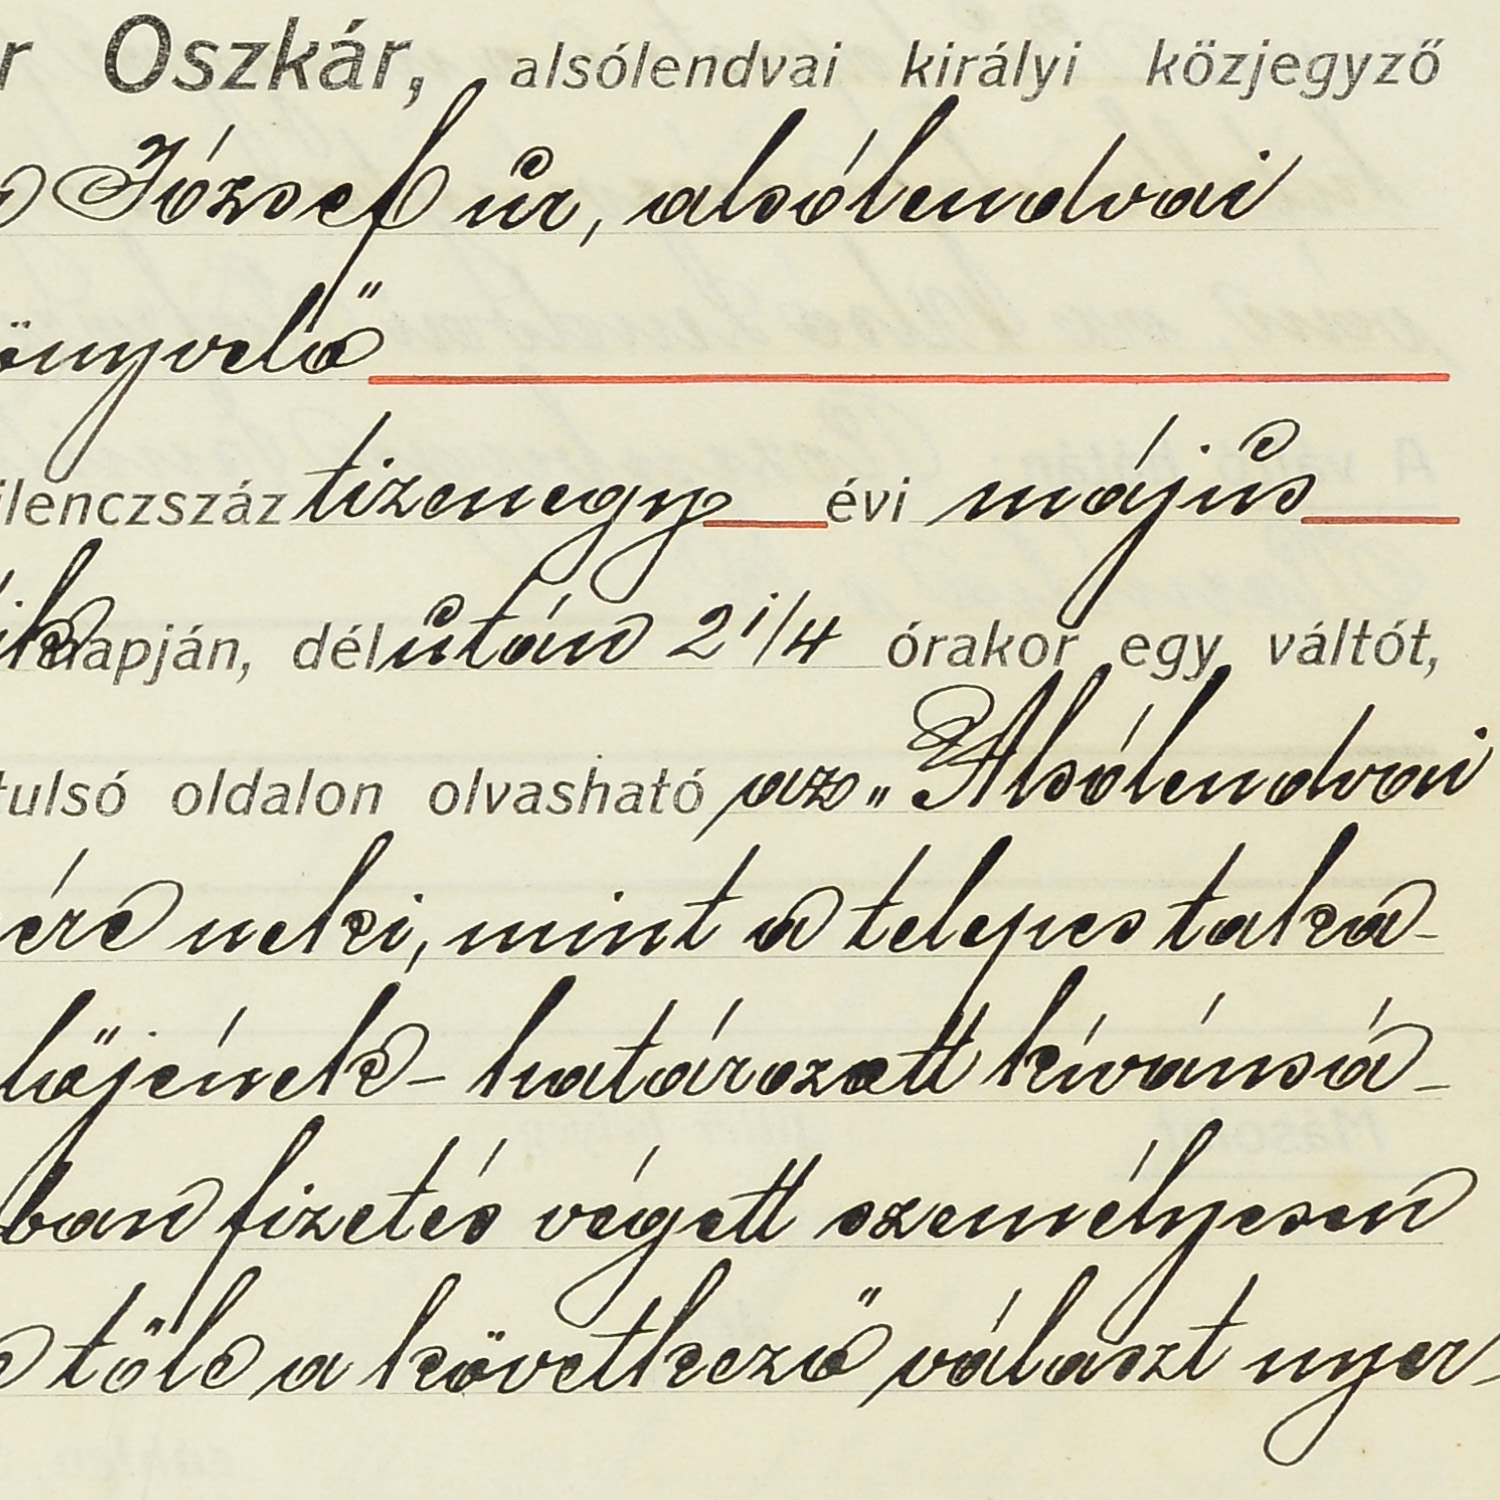 r Oszkár, alsólendvai királyi közjegyző
József úr, alsólendvai
önyvelő
ilenczszáz tizenegy évi május
ik napján, délután 2 1/4 órakor egy váltót,
tulsó oldalon olvasható az „Alsólendvai
ére neki, mint a telepes taka-
lőjének - határozott kívánsá-
ban fizetés végett személyesen
tőle a következő választ nyer-